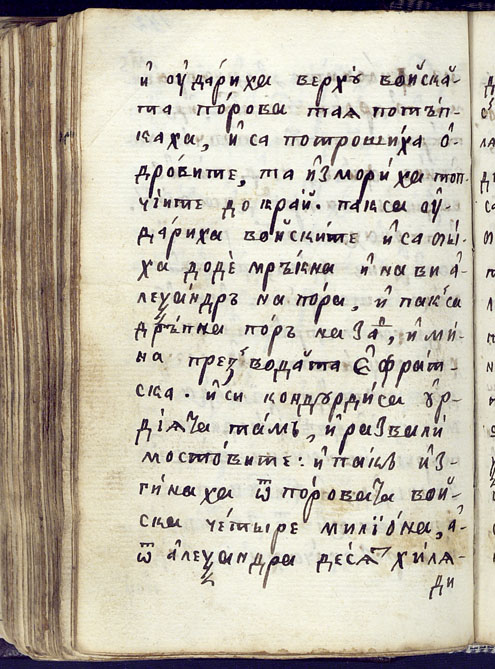 и҆ ѹ҆да́риха верхꙋ̀ войска̀-
та по́рова таѧ потъп-
каха, и҆са потроши́ха о҆-
дро́вите, та и҆змори́ха топ-
чїите до край. пакса ѹ҆-
да́риха во́йските и҆са бы́-
ха додѐ мръ́кна и҆нави а҆-
леѯа́ндръ на по́ра, и҆ пак са
дръ́пна по́ръ на заⷣ, и҆ ми́-
на презъ вода̀та Є҆фра́т-
ска. и҆си кондꙋрди́са ѹ҆р-
дїѧта тамъ, и҆развали̂
мосто́вите: и҆ па́къ и҆з-
ги́наха ѿ по́ровата вой-
ска че́тыре милїо́на, а҆-
ѿ а҆леѯа́ндра де́сѧт хи́лѧ-
ди